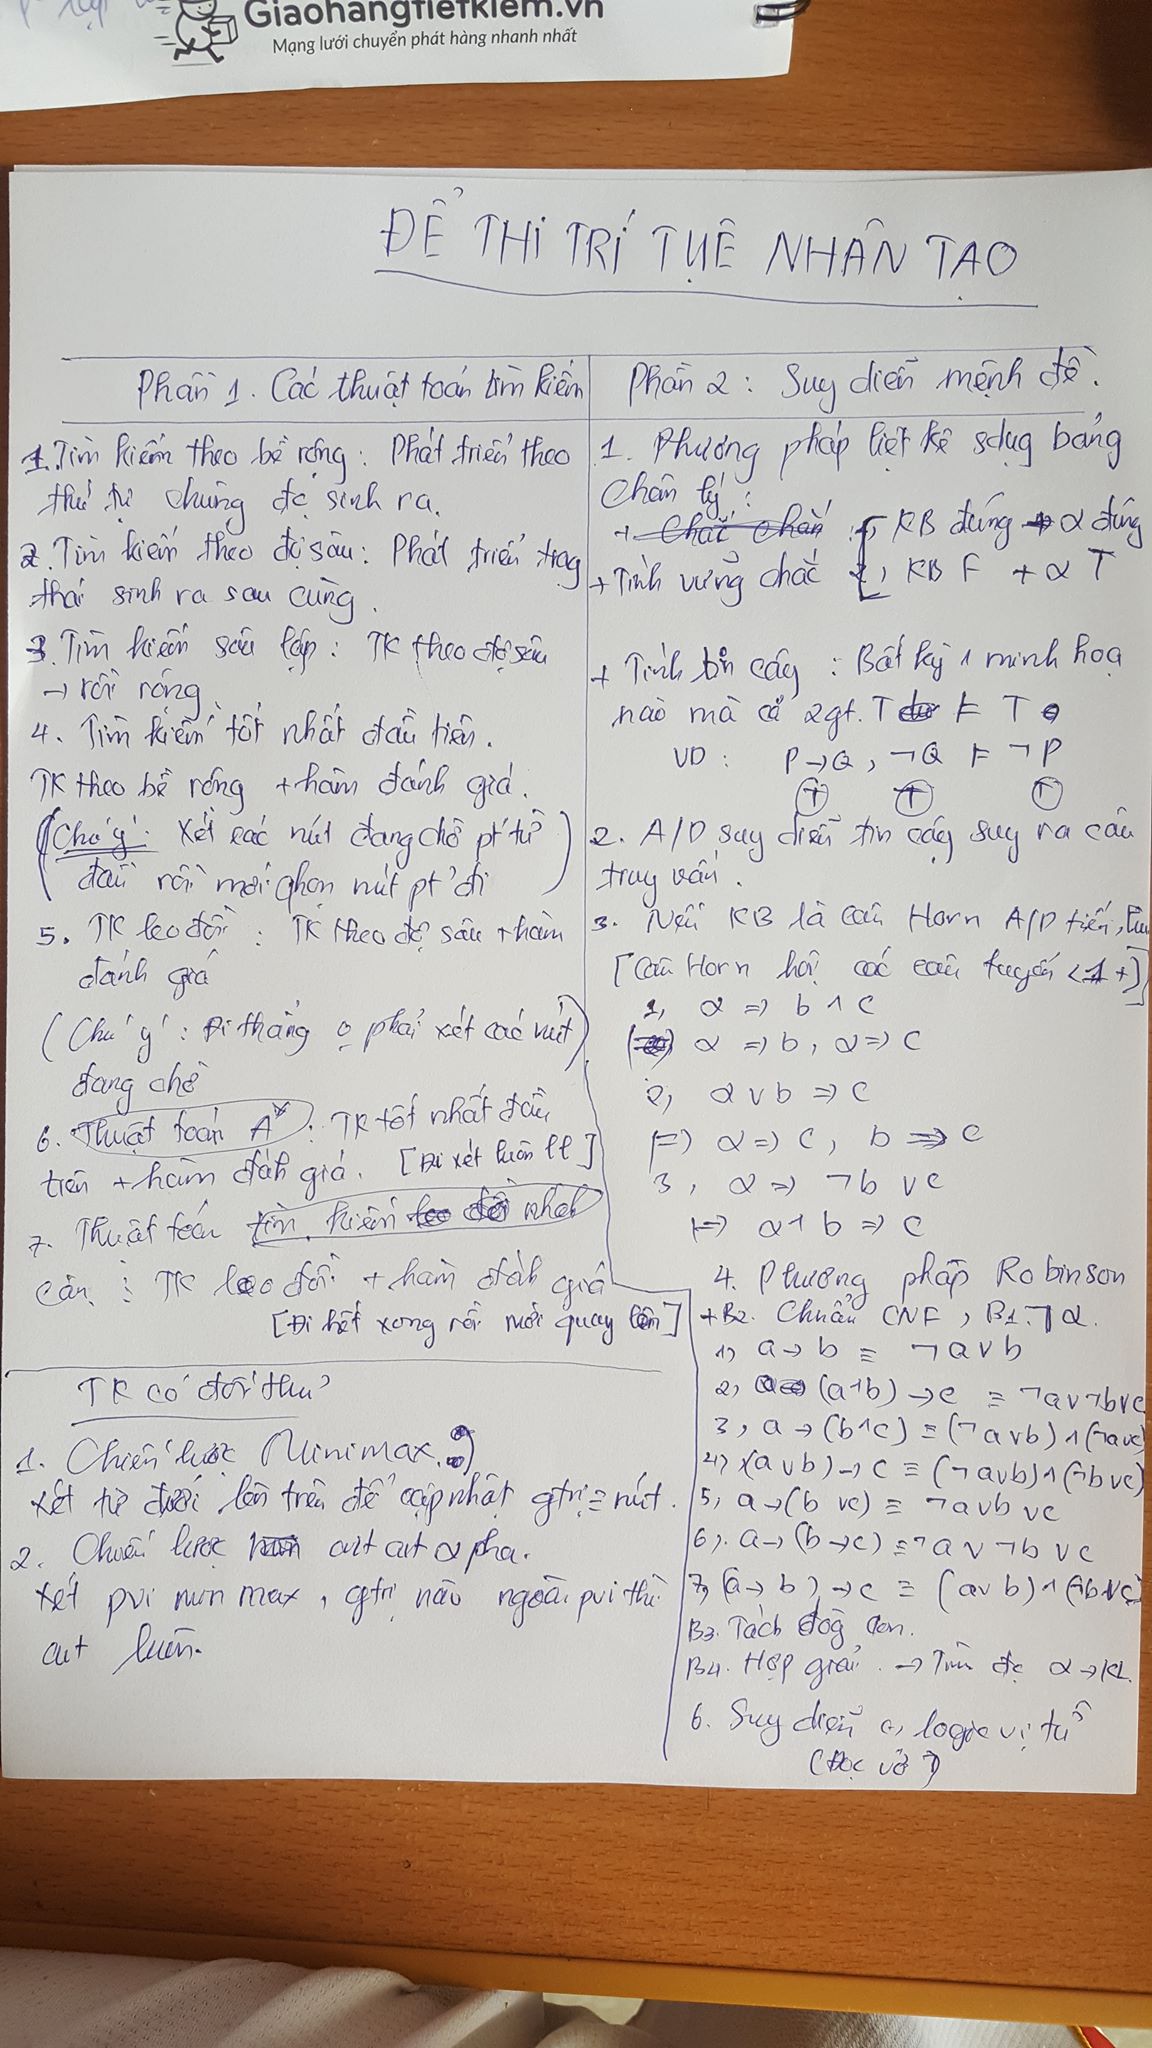 Giaohangtietkiem.vn
Mạng lưới chuyển phát hàng nhanh nhất
ĐỂ THI TRÍ TUỆ NHÂN TẠO
Phần 1. Các thuật toán tìm kiếm
1. Tìm kiếm theo bề rộng: Phát triển theo
thứ tự chúng đc sinh ra.
2. Tìm kiếm theo độ sâu: Phát triển trạng
thái sinh ra sau cùng.
3. Tìm kiếm sâu lặp: TK theo độ sâu
→ rồi rộng
4. Tìm kiếm tốt nhất đầu tiên.
TK theo bề rộng + hàm đánh giá.
(Chú ý: Xét các nút đang chờ pt từ
đầu rồi mới chọn nút pt đi)
5. TK leo đồi: TK theo độ sâu + hàm
đánh giá
(Chú ý: Đi thẳng o phải xét các nút)
đang chờ
6. Thuật toán A*: TK tốt nhất đầu
tiên + hàm đánh giá. [Đi xét luôn ll]
7. Thuật toán tìm kiếm nhánh
cận: TK leo đồi + hàm đánh giá
[Đi hết xong rồi mới quay lên]
TK có đối thủ
1. Chiến lược Minimax.
Xét từ dưới lên trên để cập nhật gtrị = nút.
2. Chiến lược cut cut alpha.
Xét pvi min max, gtrị nào ngoài pvi thì
cut luôn.
Phần 2: Suy diễn mệnh đề.
1. Phương pháp liệt kê sdụg bảng
chân lý:
+ Chắc chắn 1, KB đúng → α đúng
+ Tính vững chắc 2, KB F + α T
+ Tính tin cậy: Bất kỳ 1 minh hoạ
nào mà cả 2gt. T ⊨ T
VD: P→Q, ¬Q ⊨ ¬P
T T T
2. A/D suy diễn tin cậy suy ra câu
truy vấn.
3. Nếu KB là câu Horn A/D tiến, lùi
[Câu Horn hội các câu tuyển <1+]
1, α ⇒ b ∧ c
α ⇒ b, α ⇒ c
2, α ∨ b ⇒ c
(=) α ⇒ c, b ⇒ c
3, α ⇒ ¬b ∨ c
(=) α ∧ b ⇒ c
4. Phương pháp Robinson
+B2. Chuẩn CNF, B1. ¬α.
1) a → b ≡ ¬a ∨ b
2, (a∧b) → c ≡ ¬a ∨ ¬b ∨ c
3, a → (b∧c) ≡ (¬a ∨ b) ∧ (¬a ∨ c)
4) (a ∨ b) → c ≡ (¬a ∨ b) ∧ (¬b ∨ c)
5, a → (b ∨ c) ≡ ¬a ∨ b ∨ c
6). a → (b → c) ≡ ¬a ∨ ¬b ∨ c
7, (a → b) → c ≡ (a ∨ b) ∧ (¬b ∨ c)
B3. Tách dòg con.
B4. Hợp giải. → Tìm đc α → KL.
6. Suy diễn logic vị từ
(Đọc vở T)